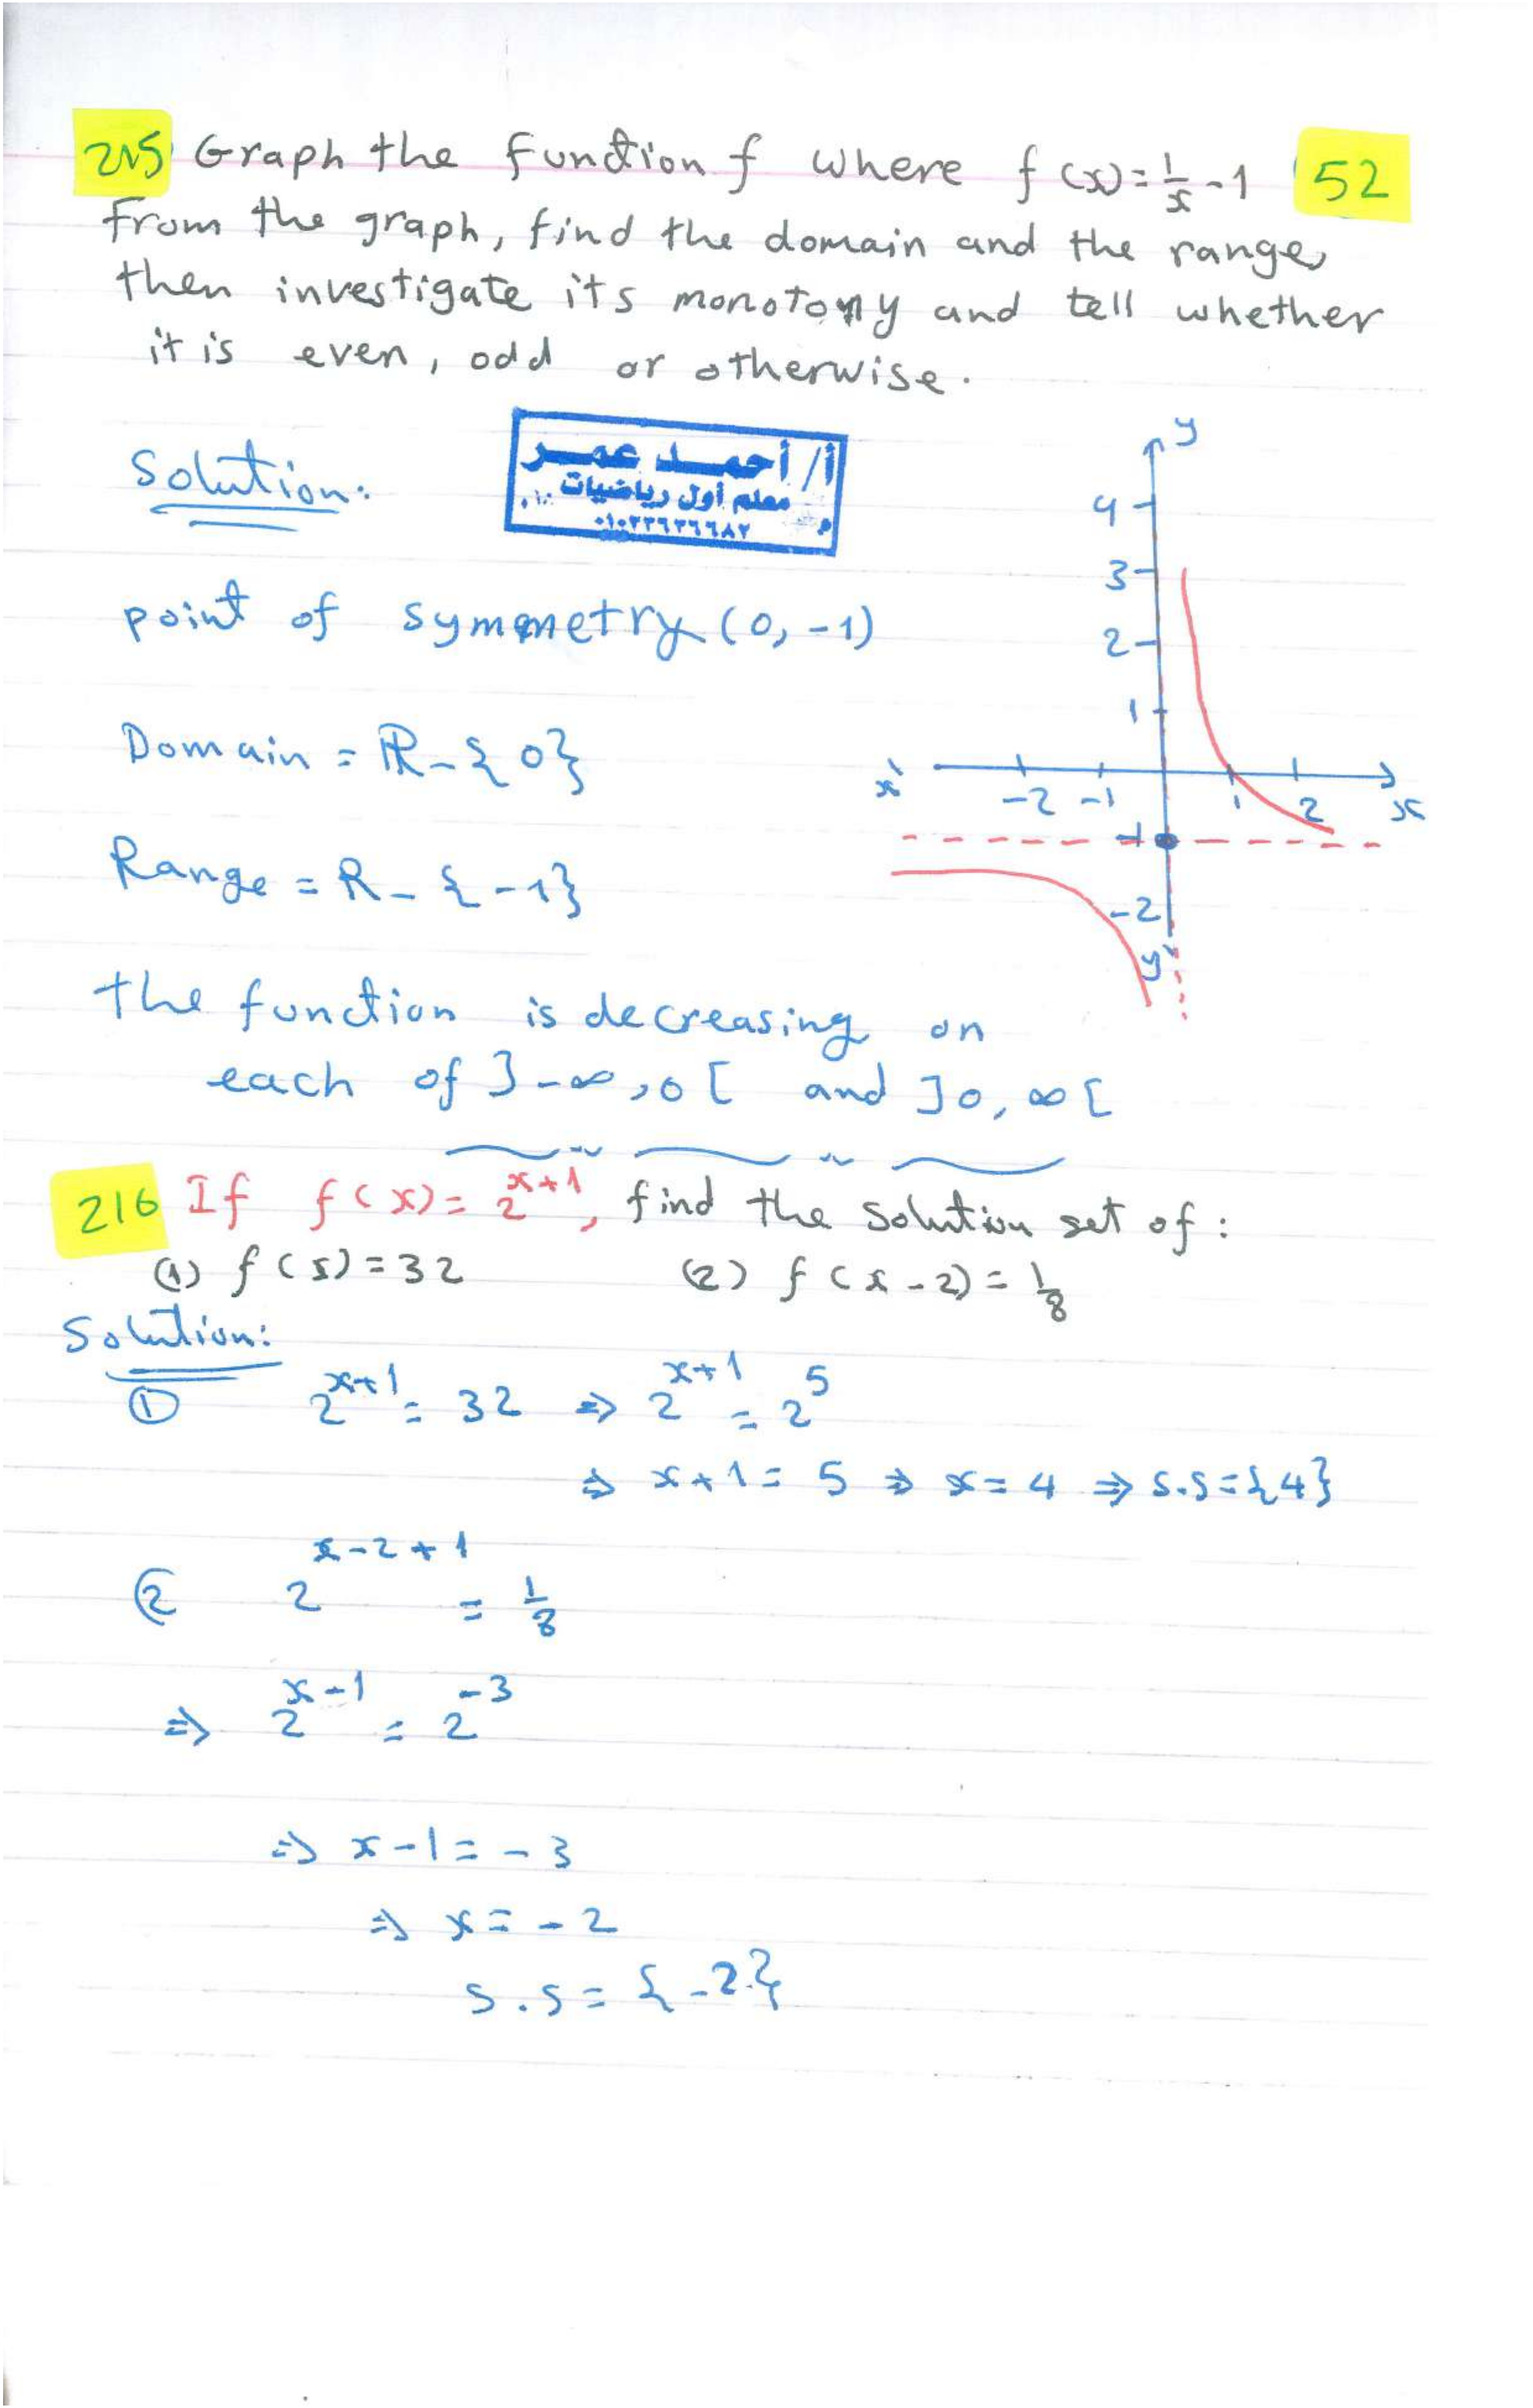 215 Graph the function f where f(x) = 1/x - 1 52
From the graph, find the domain and the range,
then investigate its monotony and tell whether
it is even, odd or otherwise.
Solution:
أ/ أحمد عمر
معلم أول رياضيات
م
٠١٠٢٢٦٢٦٦٨٢
point of symmetry (0, -1)
Domain = R - {0}
Range = R - {-1}
the function is decreasing on
each of ]-∞, 0[ and ]0, ∞[
y
4
3
2
1
x' -2 -1 1 2 x
-1
-2
y'
216 If f(x) = 2^(x+1), find the solution set of:
(1) f(x) = 32 (2) f(x - 2) = 1/8
Solution:
① 2^(x+1) = 32 ⇒ 2^(x+1) = 2^5
⇒ x + 1 = 5 ⇒ x = 4 ⇒ S.S = {4}
② 2^(x-2+1) = 1/8
⇒ 2^(x-1) = 2^-3
⇒ x - 1 = -3
⇒ x = -2
S.S = {-2}